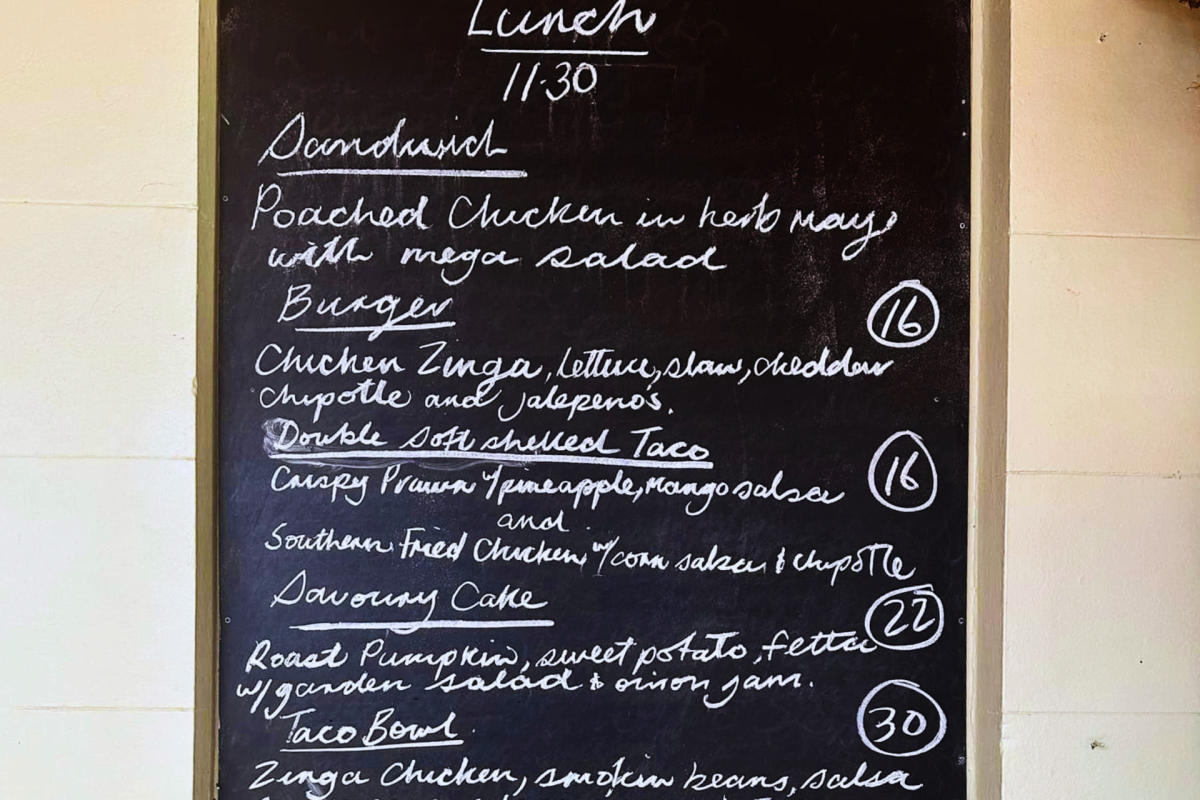 Lunch
11.30
Sandwich
Poached Chicken in herb mayo
with mega salad
Burger
16
Chicken Zinga, lettuce, slaw, cheddar
chipotle and jalepeno's.
Double Soft shelled Taco
Crispy Prawn w/pineapple, mango salsa
16
and
Southern Fried Chicken w/corn salsa & chipotle
Savoury Cake
22
Roast Pumpkin, sweet potato, fetta
w/garden salad & onion jam.
Taco Bowl
30
Zinga Chicken, smokin beans, salsa